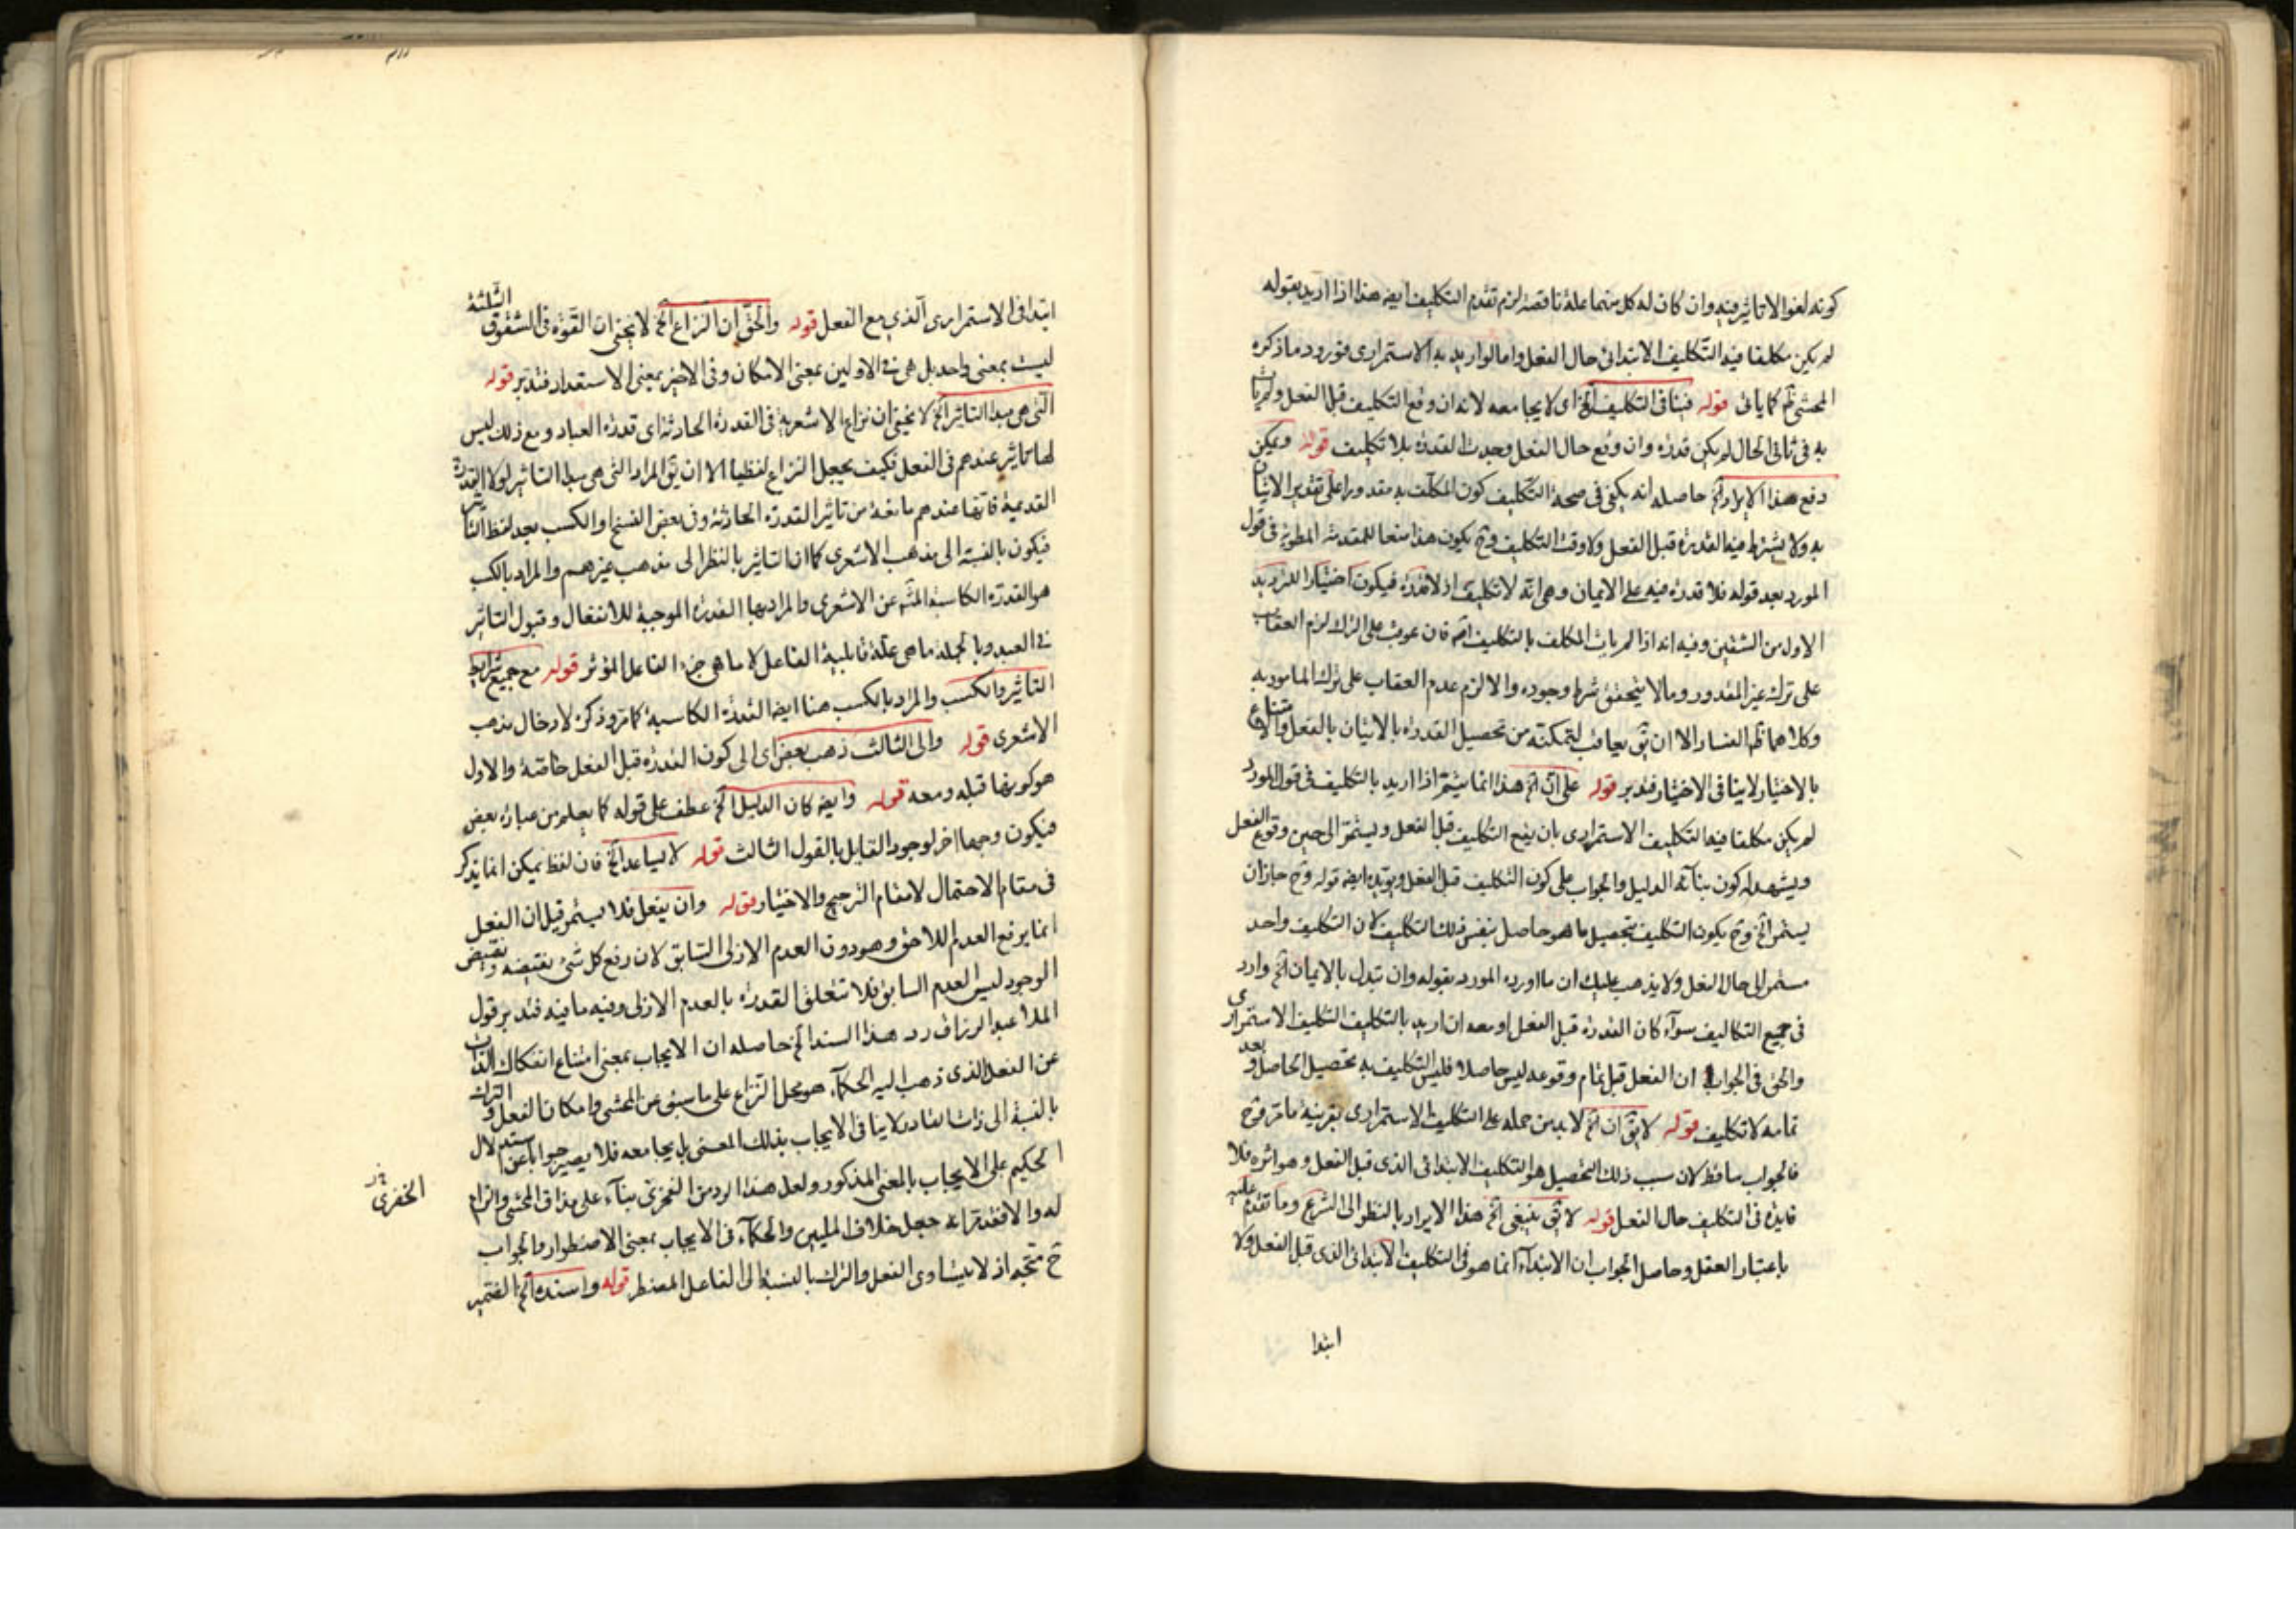 كونه لغوا لا تاثير فيه وان كان له كل منهما علة ناقصة لزم تقدم التكليف ايضه هذا اذا اريد بقوله
لم يكن مكلفا فيه التكليف الابتدائى حال الفعل واما لو اريد به الاستمرارى فورود ما ذكره
المحشى ثم كما ياتى قوله فينافى التكليف الخ اى لا يجامعه لانه ان وقع التكليف قبل الفعل ولم يات
به فى ثانى الحال لم يكن قدرة وان وقع حال الفعل وجدت القدرة بلا تكليف قوله ويمكن
دفع هذا الايراد الخ حاصله انه يكفى فى صحة التكليف كون المكلف به مقدورا على تقدير الاتيان
به ولا يشترط فيه القدرة قبل الفعل ولا وقت التكليف وح يكون هذا منعا للمقدمة المطوية فى قول
المورد بعد قوله فلا قدرة فيه على الايمان وهى انه لا تكليف اذ لا قدرة فيكون اختيارا للترديد
الاول من الشقين وفيه انه اذا لم يات المكلف بالتكليف فان عوقب على الترك لزم العقاب
على ترك غير المقدور وما لا يتحقق شرط وجوده والا لزم عدم العقاب على ترك المامور به
وكلاهما ظ الفساد الا ان يق يعاقب لتمكنه من تحصيل القدرة بالاتيان بالفعل والامتناع
بالاختيار لا ينافى الاختيار فتدبر قوله على ان الخ هذا انما يتم اذا اريد بالتكليف فى قول المورد
لم يكن مكلفا فيه التكليف الاستمرارى بان يقع التكليف قبل الفعل ويستمر الى حين وقوع الفعل
ويشهد له كون بناء الدليل والجواب على كون التكليف قبل الفعل ويؤيده ايضه قوله وح جاز ان
يستمر الخ وح يكون التكليف بتحصيل ما هو حاصل بنفس ذلك التكليف لان التكليف واحد
مستمر الى حال الفعل ولا يذهب عليك ان ما اورده المورد بقوله وان تبدل بالايمان الخ وارد
فى جميع التكاليف سواء كان القدرة قبل الفعل او معه ان اريد بالتكليف التكليف الاستمرارى
والحق فى الجواب ان الفعل قبل تمام وقوعه ليس حاصلا فليس التكليف به تحصيل الحاصل وبعد
تمامه لا تكليف قوله لا يق ان الخ لا بد من حمله على التكليف الاستمرارى بقرينة ما مر وح
فالجواب ساقط لان سبب ذلك التحصيل هو التكليف الابتدائى الذى قبل الفعل وهو اثره فلا
فايدة فى التكليف حال الفعل قوله لا يق ينبغى الخ هذا الايراد بالنظر الى الشرع وما تقدم عليه
باعتبار العقل وحاصل الجواب ان الابتداء انما هو فى التكليف الابتدائى الذى قبل الفعل ولا
ابتدا
ابتدا فى الاستمرارى الذى مع الفعل قوله والحق ان النزاع الخ لا يخفى ان القوة فى الشقوق الثلثة
ليست بمعنى واحد بل هى فى الاولين بمعنى الامكان وفى الاخير بمعنى الاستعداد فتدبر قوله
التى هى مبدا التاثير الخ لا يخفى ان نزاع الاشعرية فى القدرة الحادثة اى قدرة العباد ومع ذلك ليس
لها تاثير عندهم فى الفعل فكيف يجعل النزاع لفظيا الا ان يق المراد التى هى مبدا التاثير لولا القدرة
القديمة فانها عندهم مانعة من تاثير القدرة الحادثة وفى بعض النسخ او الكسب بعد لفظ التاثير
فيكون بالنسبة الى مذهب الاشعرى كما ان التاثير بالنظر الى مذهب غيرهم والمراد بالكسب
هو القدرة الكاسبة عن الاشعرى والمراد بها القدرة الموجبة للانفعال وقبول التاثير
فى العبد وبالجملة ما هى علة قابلية الفاعل لا ما هى جزء الفاعل المؤثر قوله مع جميع شرايط
التاثير والكسب والمراد بالكسب هنا ايضه القدرة الكاسبة كما مر وذكره لادخال مذهب
الاشعرى قوله والى الثالث ذهب بعض اى الى كون القدرة قبل الفعل خاصة والاول
هو كونها قبله ومعه قوله وايضه كان الدليل الخ عطف على قوله كما يعلم من عبارة بعض
فيكون وجها اخر لوجود القايل بالقول الثالث قوله لا يساعد الخ فان لفظ يمكن انما يذكر
فى مقام الاحتمال لا مقام الترجيح والاختيار قوله وان يفعل فلا يستمر قيل ان الفعل
انما يرفع العدم اللاحق وهو دون العدم الازلى السابق لان رفع كل شئ نقيضه ونقيض
الوجود ليس العدم السابق فلا تتعلق القدرة بالعدم الازلى وفيه ما فيه فتدبر قول
الملا عبد الرزاق رد هذا السند الخ حاصله ان الايجاب بمعنى امتناع انفكاك الذات
عن الفعل الذى ذهب اليه الحكماء هو محل النزاع على ما سبق عن المحشى وامكان الفعل والترك
بالنسبة الى ذات القادر لا ينافى الايجاب بذلك المعنى بل يجامعه فلا يصير جوابا عن استدلال
الحكيم على الايجاب بالمعنى المذكور ولعل هذا الرد من الفخرى بناء على مذاق المحشى والزام
له والا فقد تراه جعل خلاف المليين والحكماء فى الايجاب بمعنى الاضطرار والجواب
ح متجه اذ لا يتساوى الفعل والترك بالنسبة الى الفاعل المضطر قوله واسنده الخ الضمير
الخفرى